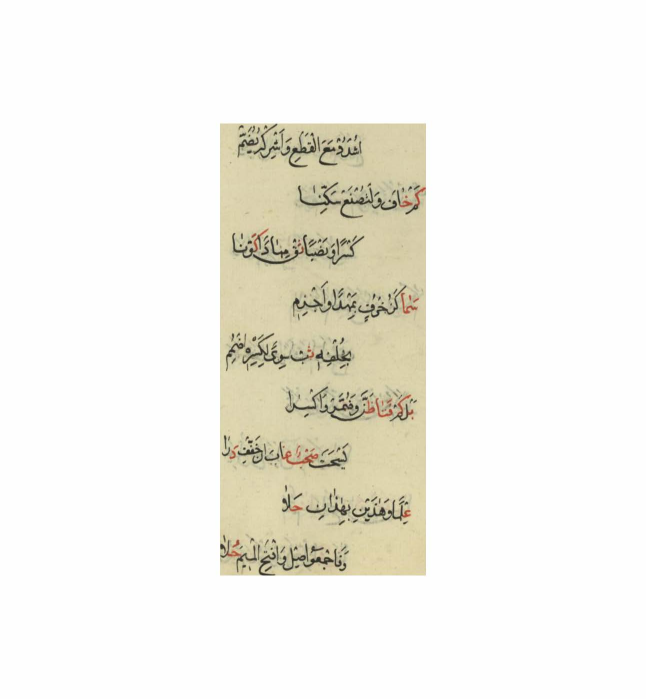 اشدد مع القطع وأشركه يضم
كم خاف ولتصنع سكنا
كسرا ونصبا ثق مهادا كونا
سما كزخرف بمهدا واجزم
نخلفه ثب سوى بكسره اضمم
نل كم فتا ظن وضم واكسرا
يسحت صحب غاب إن خفف درا
علما وهذين بهذان حلا
وفاجمعوا صل وافتح الميم حلا